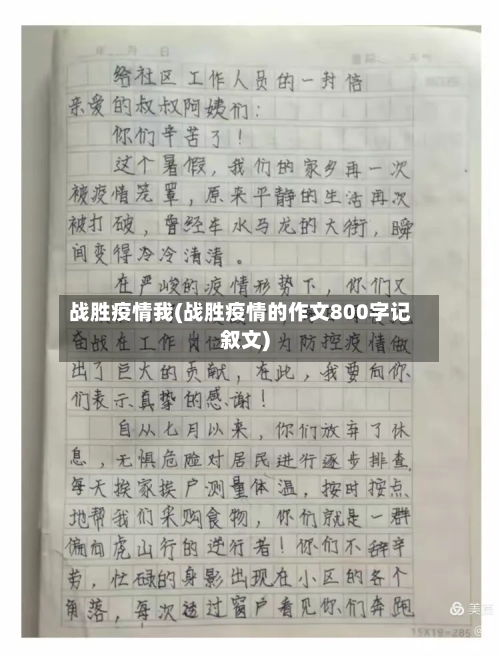 年 月 日
给社区工作人员的一封信
亲爱的叔叔阿姨们：
你们辛苦了！
这个暑假，我们的家乡再一次
被疫情笼罩，原来平静的生活再次
被打破，曾经车水马龙的大街，瞬
间变得冷冷清清。
在严峻的疫情形势下，你们又
战胜疫情我(战胜疫情的作文800字记
叙文)
奋战在工作岗位 为防控疫情做
出了巨大的贡献，在此，我要向你
们表示真挚的感谢！
自从七月以来，你们放弃了休
息，无惧危险对居民进行逐步排查，
每天挨家挨户测量体温，按时按点
地帮我们采购食物，你们就是一群
偏向虎山行的逆行者！你们不辞辛
劳，忙碌的身影出现在小区的各个
角落，每次透过窗户看见你们奔跑
15X19=285